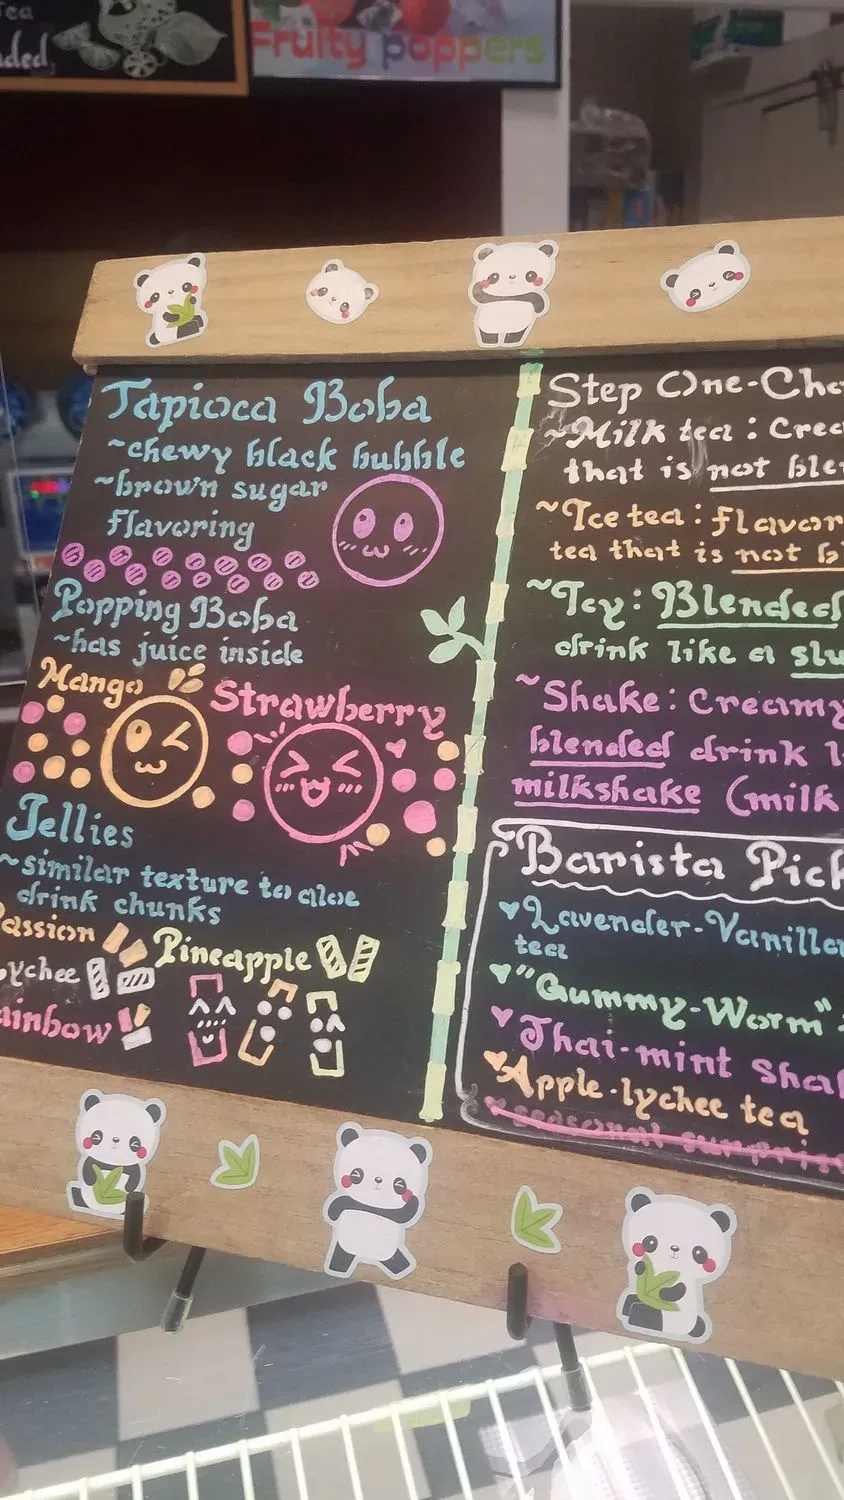 Tea
Fruity poppers
Tapioca Boba
~chewy black bubble
~brown sugar
flavoring
Popping Boba
~has juice inside
Mango
Strawberry
Jellies
~similar texture to aloe
drink chunks
Passion
Pineapple
Lychee
Rainbow
Step One-Cho
~Milk tea: Crea
that is not ble
~Ice tea: flavor
tea that is not b
~Icy: Blended
drink like a slu
~Shake: Creamy
blended drink l
milkshake (milk
Barista Pick
Lavender-Vanilla
tea
"Gummy-Worm"
Thai-mint Shak
Apple-lychee tea
seasonal surprise